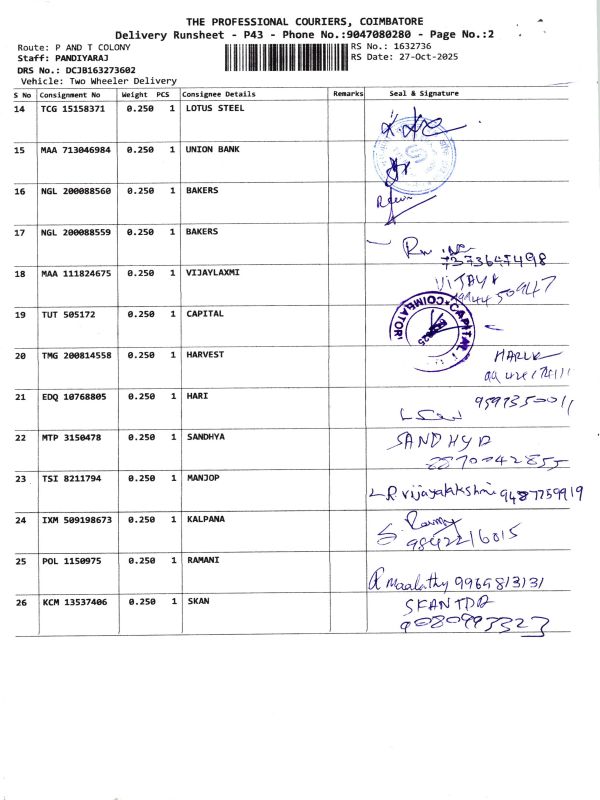 THE PROFESSIONAL COURIERS, COIMBATORE
Delivery Runsheet - P43 - Phone No.:9047080280 - Page No.:2
Route: P AND T COLONY
RS No.: 1632736
Staff: PANDIYARAJ
RS Date: 27-Oct-2025
DRS No.: DCJB163273602
Vehicle: Two Wheeler Delivery
S No Consignment No Weight PCS Consignee Details Remarks Seal & Signature
14 TCG 15158371 0.250 1 LOTUS STEEL
15 MAA 713046984 0.250 1 UNION BANK
16 NGL 200088560 0.250 1 BAKERS
17 NGL 200088559 0.250 1 BAKERS
18 MAA 111824675 0.250 1 VIJAYLAXMI
VIJAYA
19 TUT 505172 0.250 1 CAPITAL
CAPITAL COIMBATORE
20 TMG 200814558 0.250 1 HARVEST
21 EDQ 10768805 0.250 1 HARI
22 MTP 3150478 0.250 1 SANDHYA
SANDHYA
8870042855
23 TSI 8211794 0.250 1 MANJOP
R vijayalakshmi 9487759919
24 IXM 509198673 0.250 1 KALPANA
9842216015
25 POL 1150975 0.250 1 RAMANI
Maalathy 9969813131
26 KCM 13537406 0.250 1 SKAN
9080993323